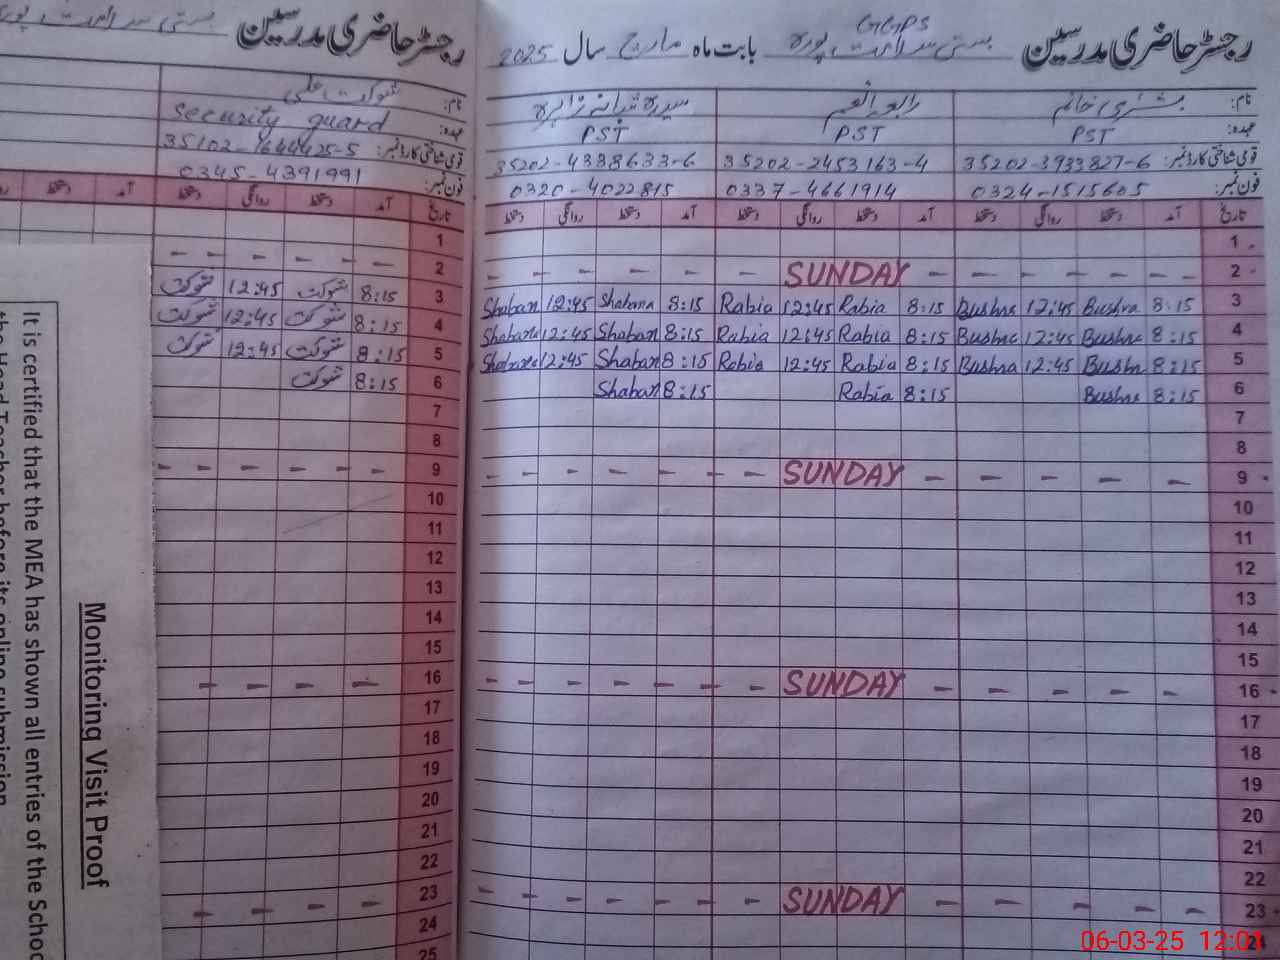 رجسٹر حاضری مدرسین GGPS بستی سرامت پورہ بابت ماہ مارچ سال 2025
نام: بشریٰ خانم رابعہ انعم سیدہ شبانہ زاہرہ
عہدہ: PST PST PST
قومی شناختی کارڈ نمبر: 35202-3933827-6 35202-2453163-4 35202-4338633-6
فون نمبر: 0324-1515605 0337-4661914 0320-4022815
تاریخ آمد دستخط روانگی دستخط آمد دستخط روانگی دستخط آمد دستخط روانگی دستخط
1
2 SUNDAY
3 8:15 Bushra 12:45 Bushra 8:15 Rabia 12:45 Rabia 8:15 Shabana 12:45 Shaban
4 8:15 Bushra 12:45 Bushra 8:15 Rabia 12:45 Rabia 8:15 Shaban 12:45 Shabana
5 8:15 Bushra 12:45 Bushra 8:15 Rabia 12:45 Rabia 8:15 Shaban 12:45 Shabana
6 8:15 Bushra 8:15 Rabia 8:15 Shaban
7
8
9 SUNDAY
10
11
12
13
14
15
16 SUNDAY
17
18
19
20
21
22
23 SUNDAY
24
رجسٹر حاضری مدرسین
نام: شوکت علی
عہدہ: Security guard
قومی شناختی کارڈ نمبر: 35102-1644425-5
فون نمبر: 0345-4391991
تاریخ آمد دستخط روانگی دستخط آمد دستخط
1
2
3 8:15 شوکت 12:45 شوکت
4 8:15 شوکت 12:45 شوکت
5 8:15 شوکت 12:45 شوکت
6 8:15 شوکت
7
8
9
10
11
12
13
14
15
16
17
18
19
20
21
22
23
24
25
Monitoring Visit Proof
It is certified that the MEA has shown all entries of the Schoo
the Head Teacher before its online submission
06-03-25 12:01